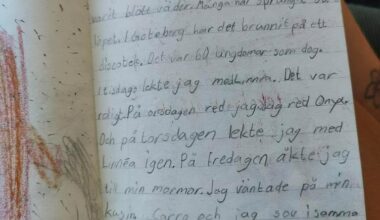 varit blött väder. Många har sprungit så
löpet. I Göteborg har det brunnit på ett
discotek. Det var 60 ungdomar som dog.
I tisdags lekte jag med Linnea. Det var
roligt. På onsdagen red jag. Jag red Onyx.
Och på torsdagen lekte jag med
Linnéa igen. På fredagen åkte jag
till min mormor. Jag väntade på min
kusin och jag sov i samma